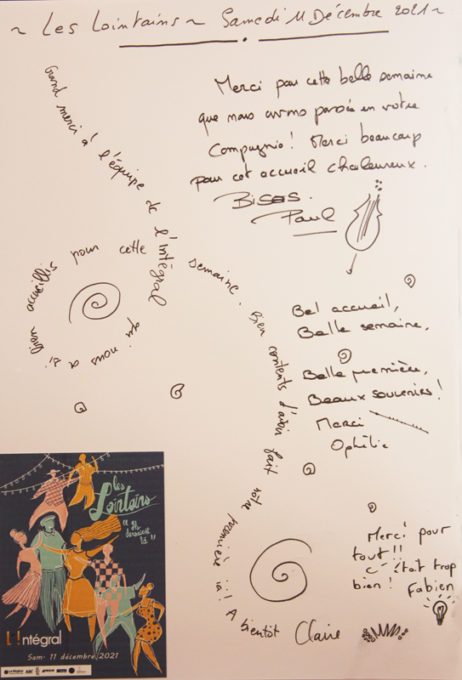 ~ Les Lointains ~ Samedi 11 Décembre 2021 ~
Merci pour cette belle semaine
que nous avons passée en votre
Compagnie ! Merci beaucoup
pour cet accueil chaleureux.
Bisos
Paul
Grand merci à l'équipe de l'Intégral qui nous a si bien accueillis pour cette semaine. Bien contents d'avoir fait notre première ici ! A bientôt Claire
Bel accueil,
Belle semaine,
Belle première,
Beaux souvenirs !
Merci
Ophélie
Merci pour
tout !!
c'était trop
bien !
Fabien
les
Lointains
L'Intégral
Sam. 11 décembre 2021